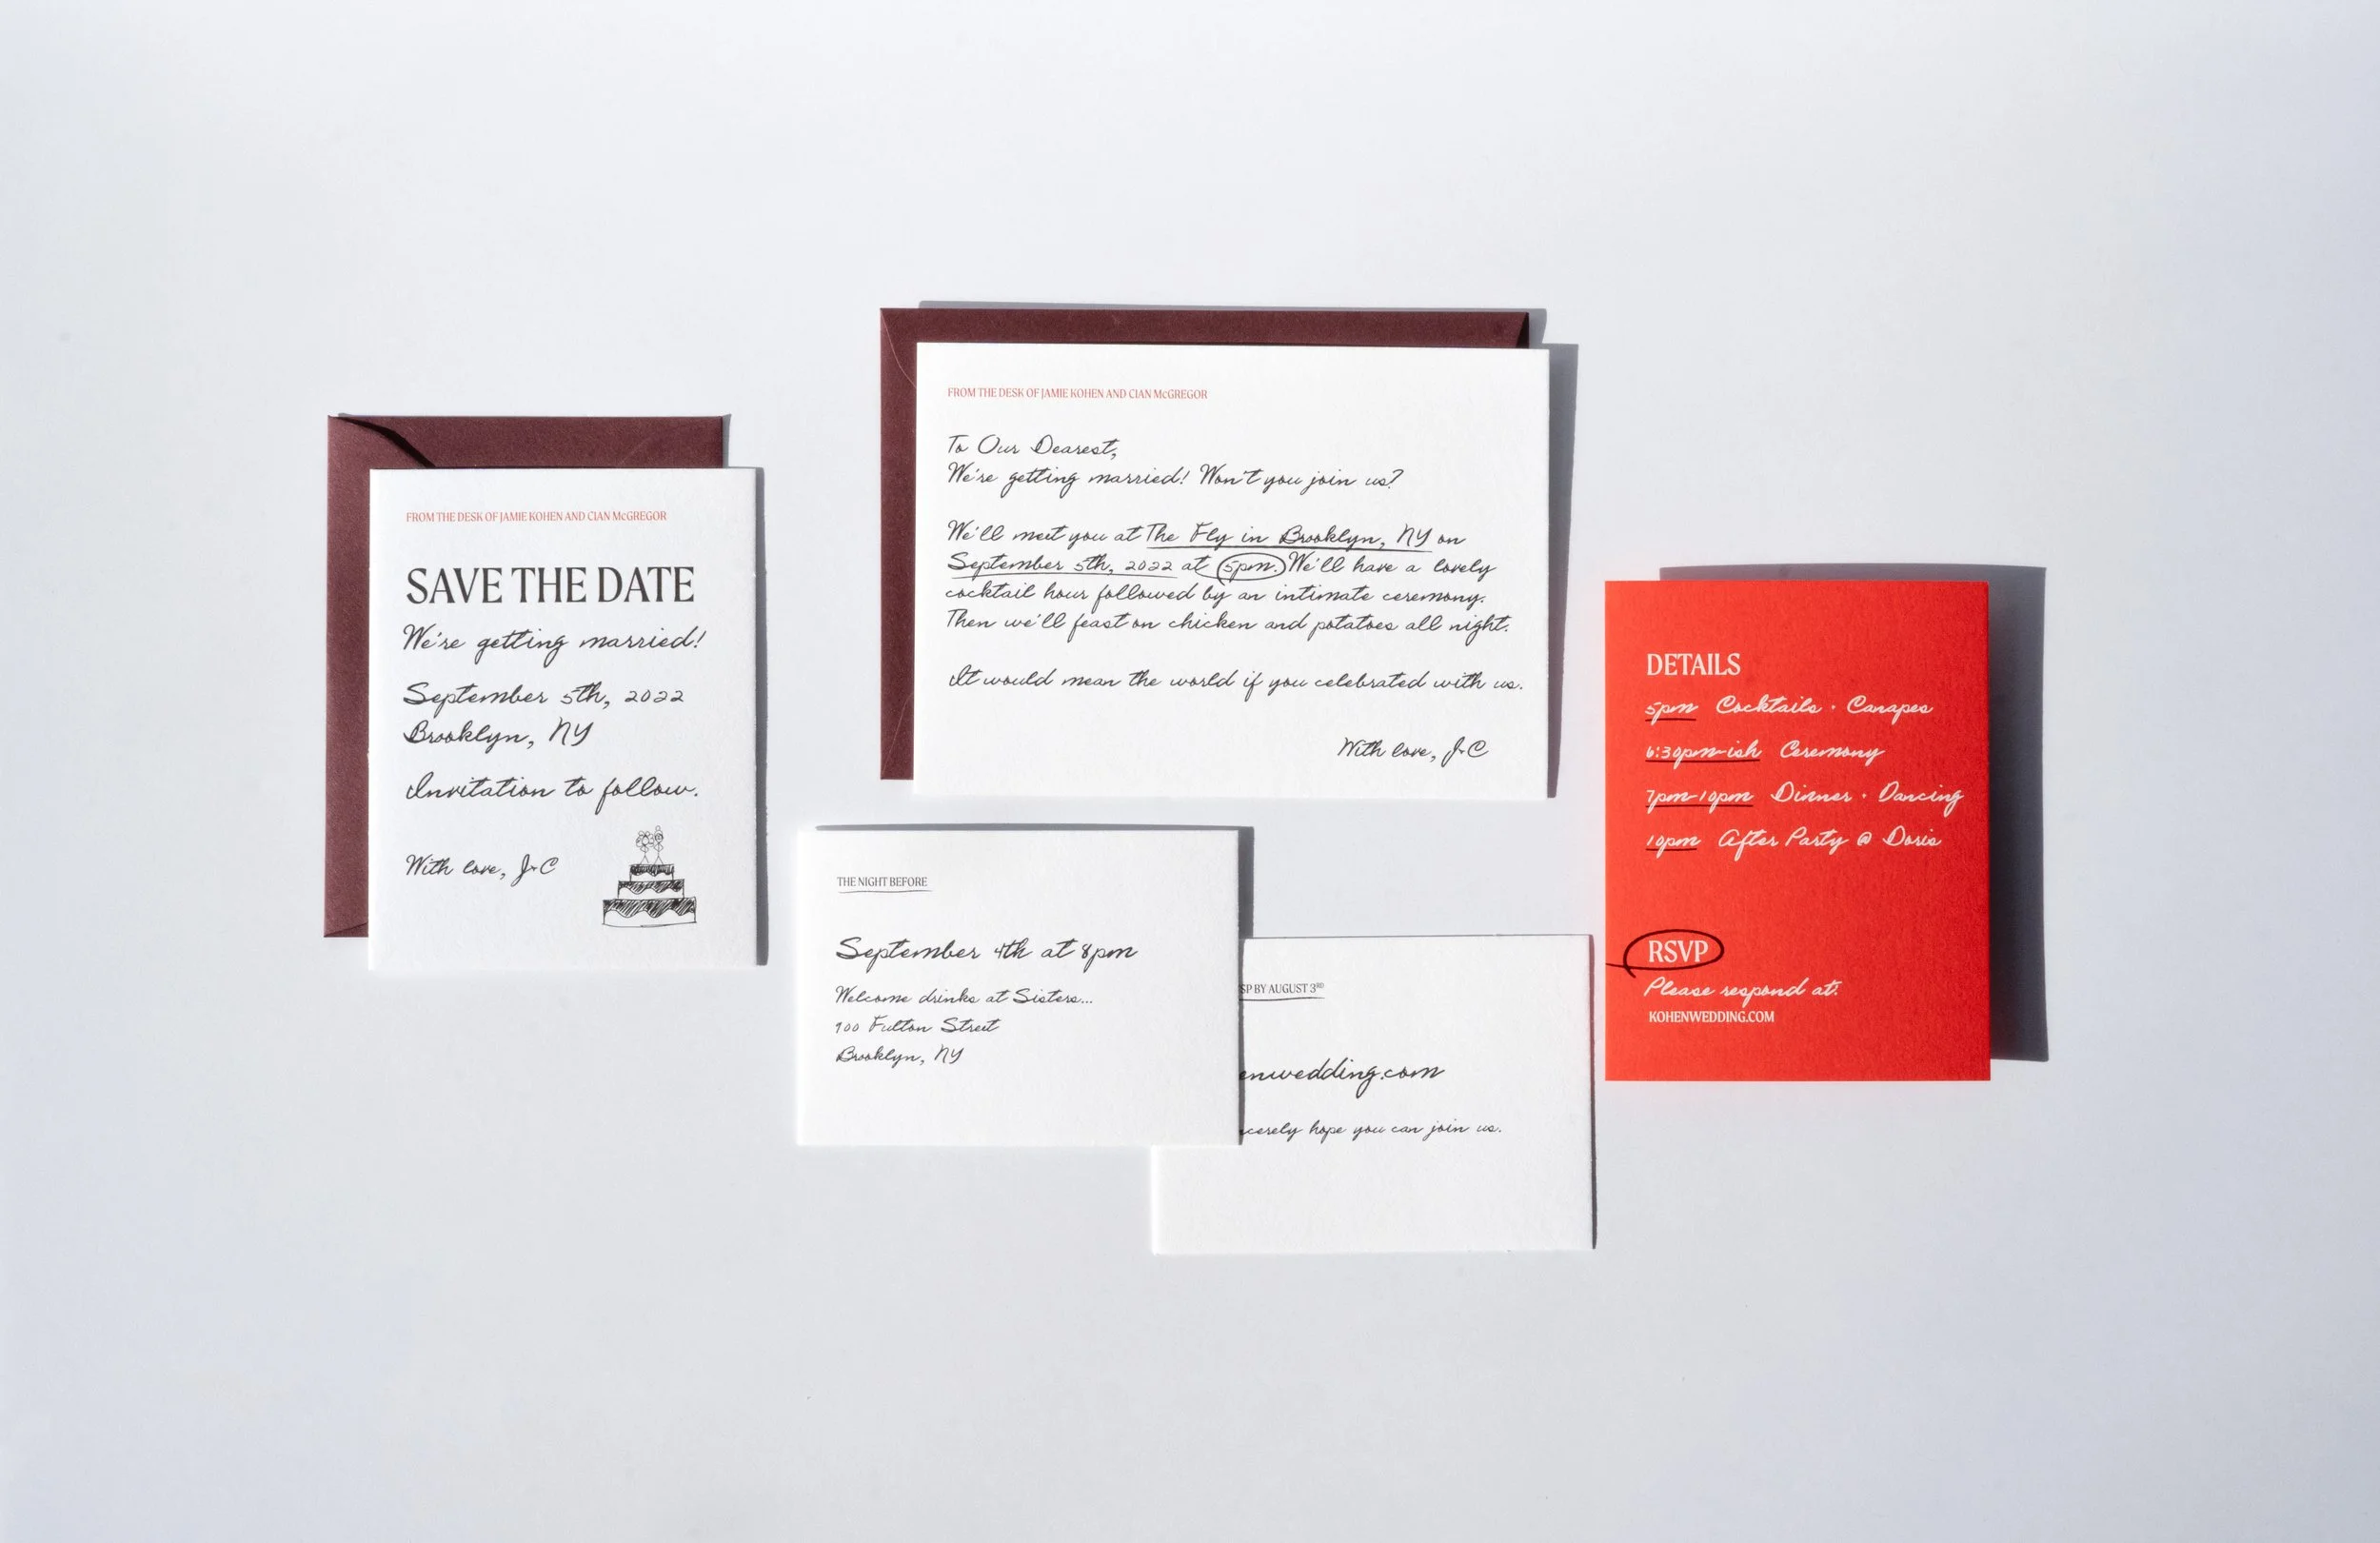 FROM THE DESK OF JAMIE KOHEN AND CIAN McGREGOR
SAVE THE DATE
We're getting married!
September 5th, 2022
Brooklyn, NY
Invitation to follow.
With love, J+C
FROM THE DESK OF JAMIE KOHEN AND CIAN McGREGOR
To Our Dearest,
We're getting married! Won't you join us?
We'll meet you at The Fly in Brooklyn, NY on
September 5th, 2022 at 5pm. We'll have a lovely
cocktail hour followed by an intimate ceremony.
Then we'll feast on chicken and potatoes all night.
It would mean the world if you celebrated with us.
With love, J+C
THE NIGHT BEFORE
September 4th at 8pm
Welcome drinks at Sisters...
900 Fulton Street
Brooklyn, NY
SP BY AUGUST 3RD
enwedding.com
cerely hope you can join us.
DETAILS
5pm Cocktails · Canapes
6:30pm-ish Ceremony
7pm-10pm Dinner · Dancing
10pm After Party @ Doris
RSVP
Please respond at:
KOHENWEDDING.COM